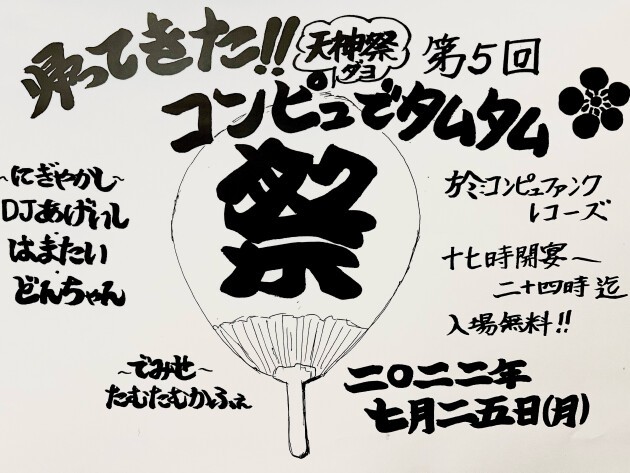 帰ってきた!!
天神祭
ダヨ
第5回
コンピュでタムタム
祭
~にぎやかし~
DJあげいし
はまたい
どんちゃん
~でみせ~
たむたむかふぇ
於:コンピュファンク
レコーズ
十七時開宴~
二十四時迄
入場無料!!
二〇二二年
七月二五日(月)